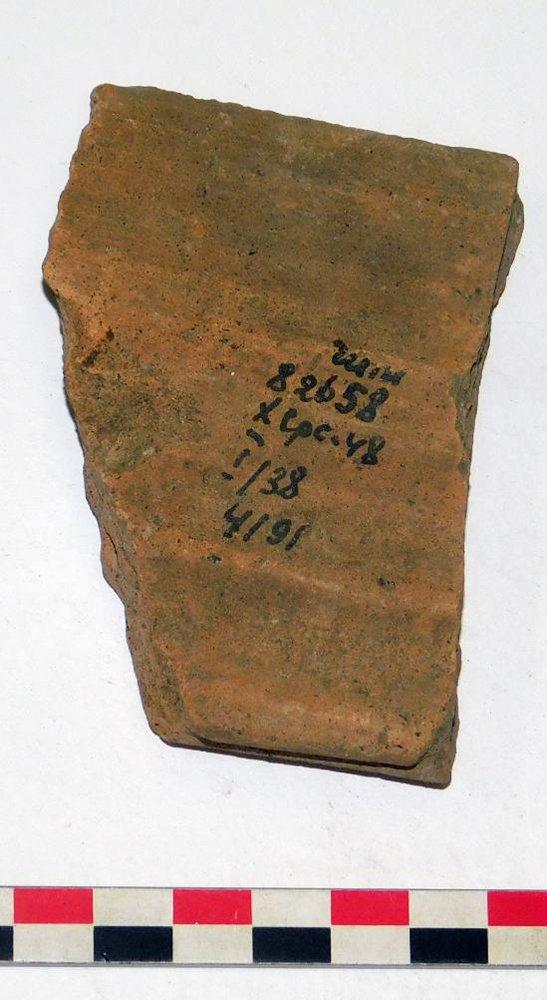 гим
82658
Херс. 48
I/38
4191